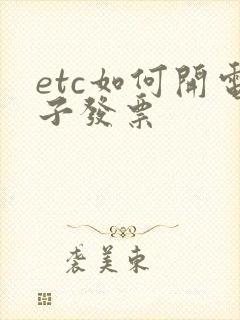 etc如何開電
子發票
裘美東